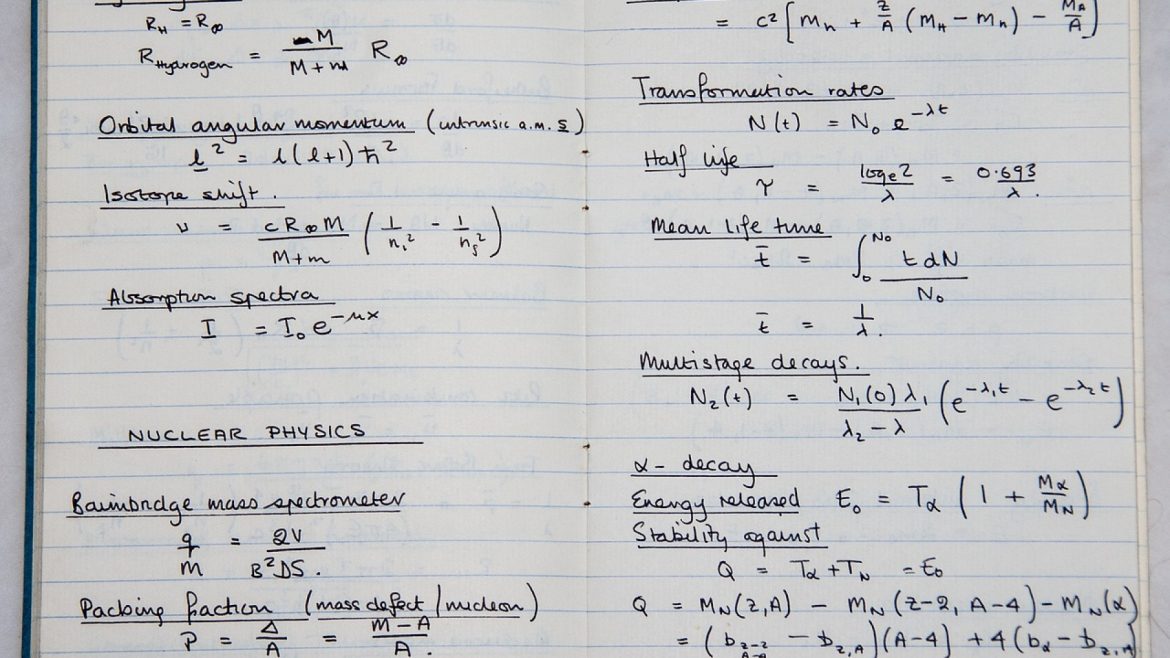 R_H = R_∞
R_Hydrogen = M / (M + m) R_∞
Orbital angular momentum (intrinsic a.m. s)
l² = l(l+1)ħ²
Isotope shift.
ν = cR_∞M / (M+m) (1/n_i² - 1/n_f²)
Absorption spectra
I = I₀ e^(-μx)
NUCLEAR PHYSICS
Bainbridge mass spectrometer
q/m = 2V / B²DS.
Packing fraction (mass defect / nucleon)
P = Δ/A = (M - A)/A.
= c² [ m_n + Z/A (m_H - m_n) - M_A/A )
Transformation rates
N(t) = N₀ e^(-λt)
Half life
τ = log_e 2 / λ = 0.693 / λ.
Mean life time
t̄ = ∫₀^N₀ t dN / N₀
t̄ = 1/λ.
Multistage decays.
N₂(t) = N₁(0) λ₁ / (λ₂ - λ) (e^(-λ₁t) - e^(-λ₂t))
α - decay
Energy released E₀ = T_α (1 + M_α/M_N)
Stability against
Q = T_α + T_N = E₀
Q = M_N(Z,A) - M_N(Z-2, A-4) - M_N(α)
= (b_(Z-2, A-4) - b_(Z,A))(A-4) + 4(b_α - b_(Z,A))